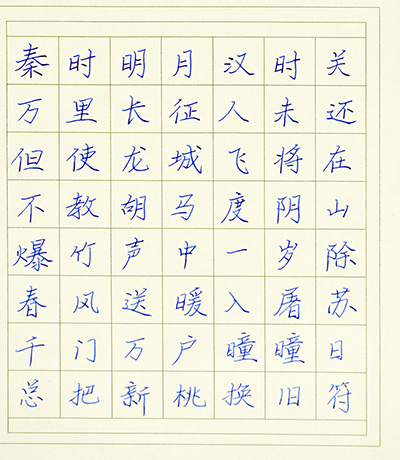 秦时明月汉时关
万里长征人未还
但使龙城飞将在
不教胡马度阴山
爆竹声中一岁除
春风送暖入屠苏
千门万户曈曈日
总把新桃换旧符